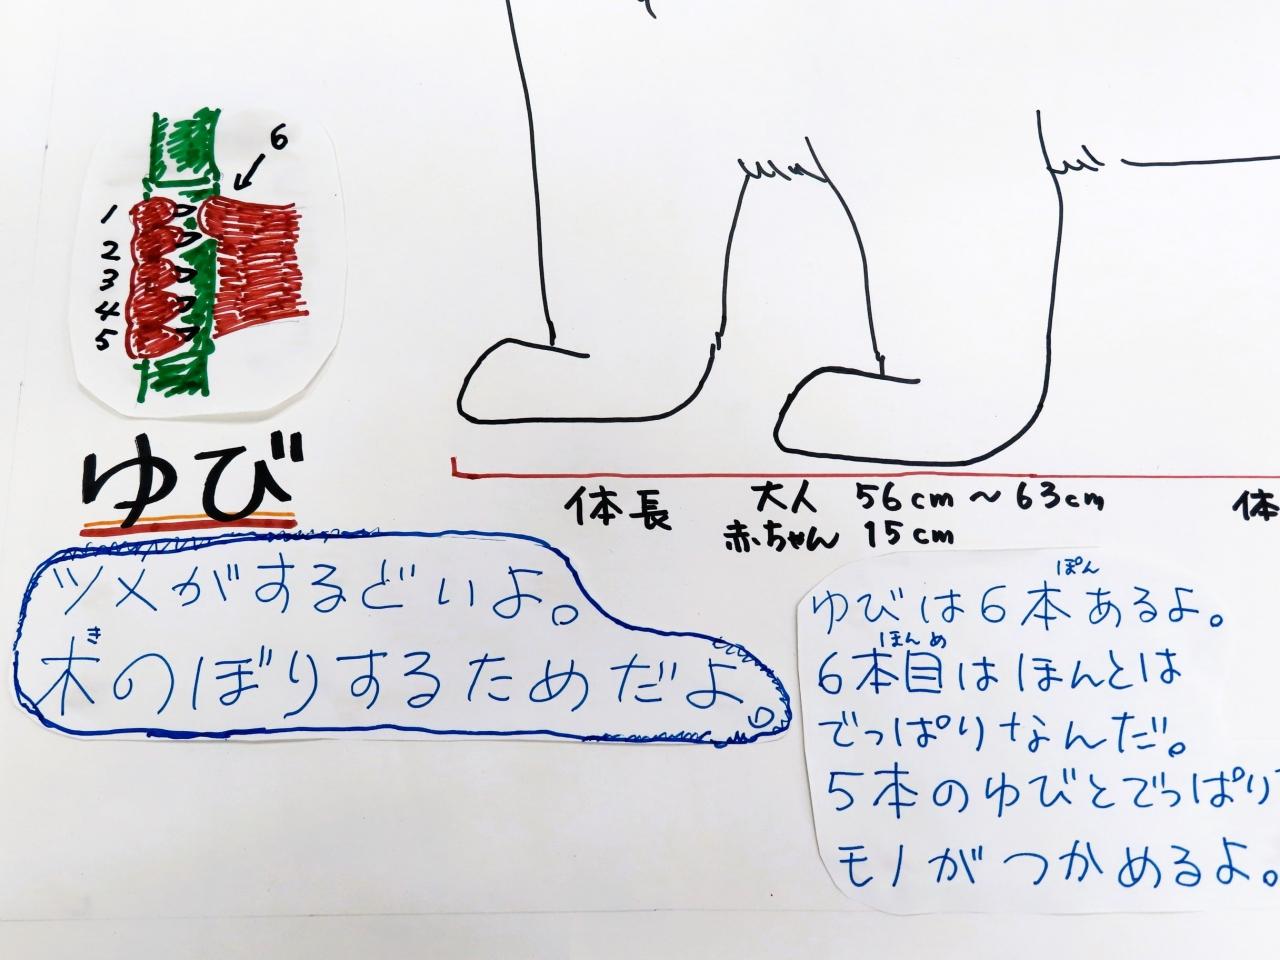 6
1
2
3
4
5
ゆび
ツメがするどいよ。
木のぼりするためだよ。
き
体長
大人 56cm～63cm
赤ちゃん 15cm
体
ゆびは6本あるよ。
ぽん
6本目はほんとは
ほんめ
でっぱりなんだ。
5本のゆびとでっぱり
モノがつかめるよ。